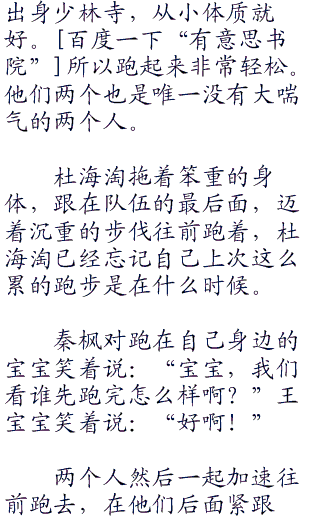 出身少林寺，从小体质就
好。[百度一下“有意思书
院”]所以跑起来非常轻松。
他们两个也是唯一没有大喘
气的两个人。
杜海淘拖着笨重的身
体，跟在队伍的最后面，迈
着沉重的步伐往前跑着，杜
海淘已经忘记自己上次这么
累的跑步是在什么时候。
秦枫对跑在自己身边的
宝宝笑着说：“宝宝，我们
看谁先跑完怎么样啊？”王
宝宝笑着说：“好啊！”
两个人然后一起加速往
前跑去，在他们后面紧跟